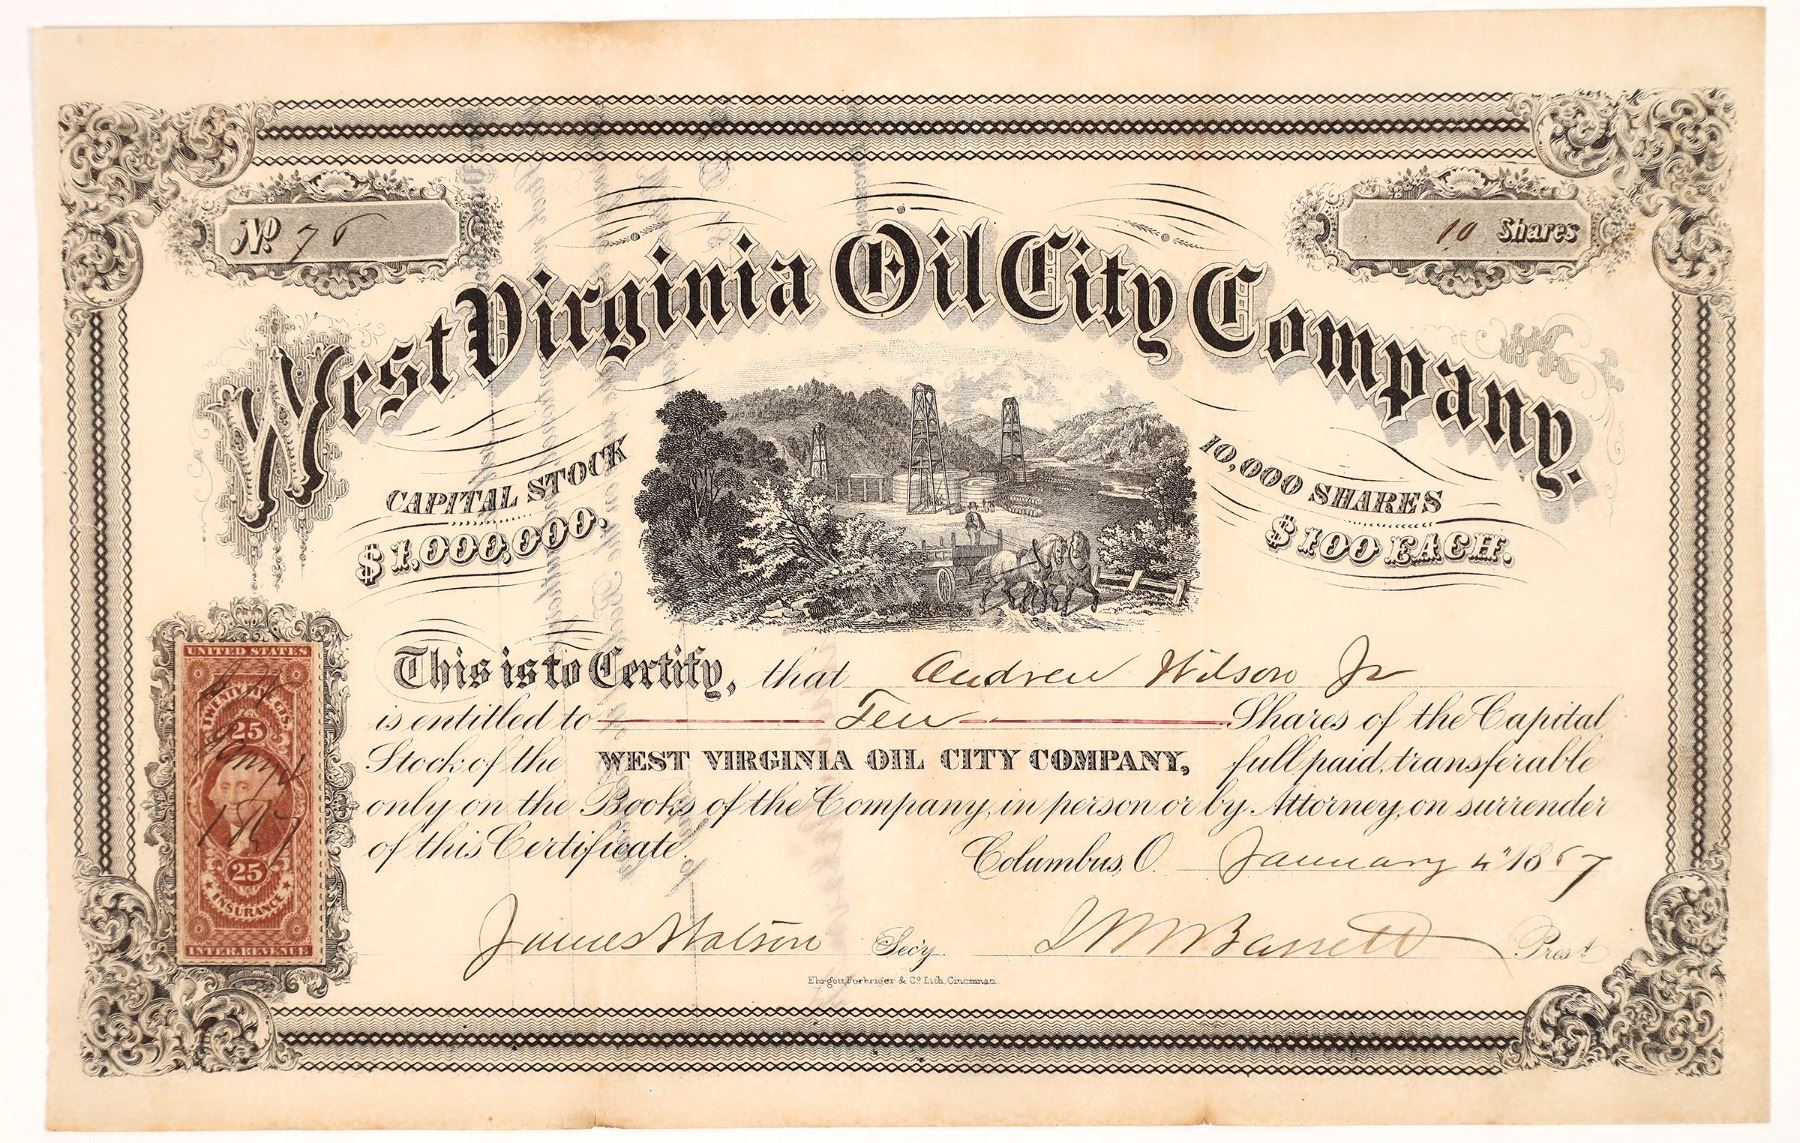 No. 76
10 Shares
West Virginia Oil City Company.
CAPITAL STOCK
$1,000,000.
10,000 SHARES
$100 EACH.
This is to Certify, that Andrew Wilson Jr
is entitled to Ten Shares of the Capital
Stock of the WEST VIRGINIA OIL CITY COMPANY, full paid, transferable
only on the Books of the Company, in person or by Attorney, on surrender
of this Certificate.
Columbus, O. January 4" 1867
James Watson Sec'y.
Prest.
Ehrgott, Forbriger & Co. Lith. Cincinnati.
UNITED STATES
TWENTY FIVE CTS.
25
1867
25
INSURANCE
INTER. REVENUE